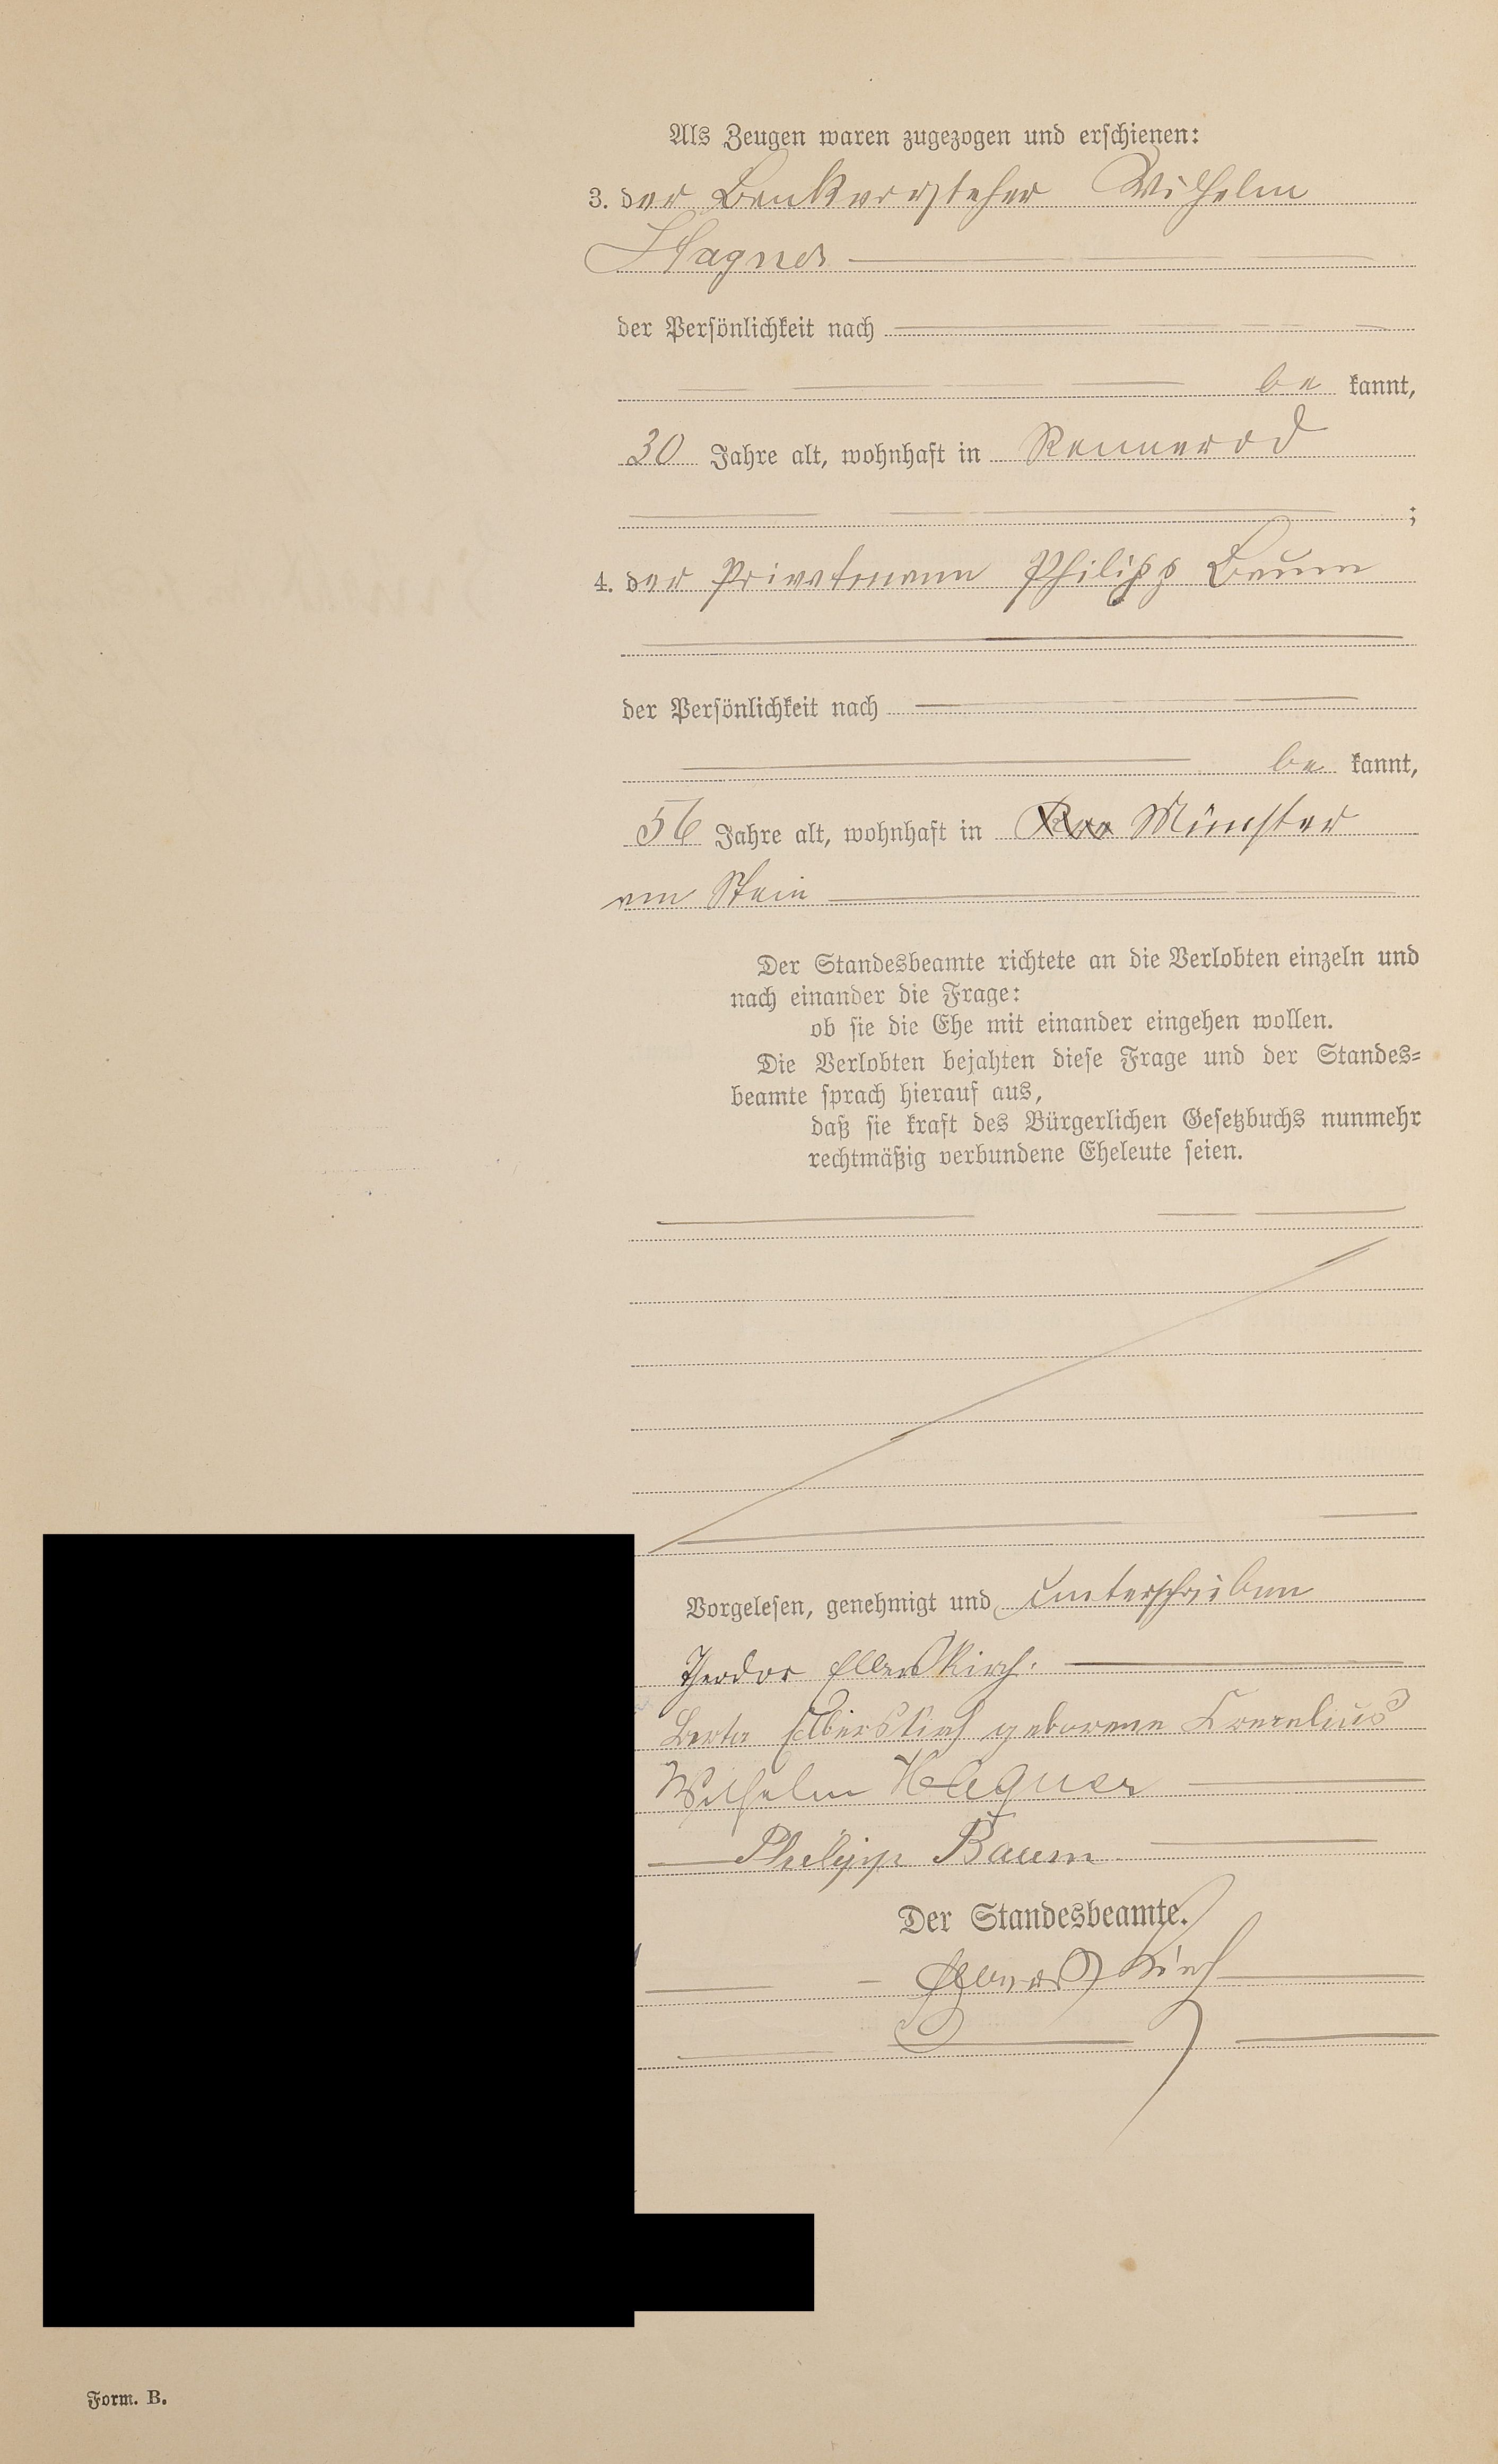 Als Zeugen waren zugezogen und erschienen:
3. der Bankvorsteher Wilhelm
Hagner
der Persönlichkeit nach
be kannt,
30 Jahre alt, wohnhaft in Rennerod
;
4. der Privatmann Philipp Baum
der Persönlichkeit nach
be kannt,
56 Jahre alt, wohnhaft in Münster
am Stein
Der Standesbeamte richtete an die Verlobten einzeln und
nach einander die Frage:
ob sie die Ehe mit einander eingehen wollen.
Die Verlobten bejahten diese Frage und der Standes=
beamte sprach hierauf aus,
daß sie kraft des Bürgerlichen Gesetzbuchs nunmehr
rechtmäßig verbundene Eheleute seien.
Vorgelesen, genehmigt und unterschrieben
Theodor Elberskirch.
Berta Elberskirch geborene Cornelius
Wilhelm Hagner
Philipp Baum
Der Standesbeamte.
Elberskirch
Form. B.